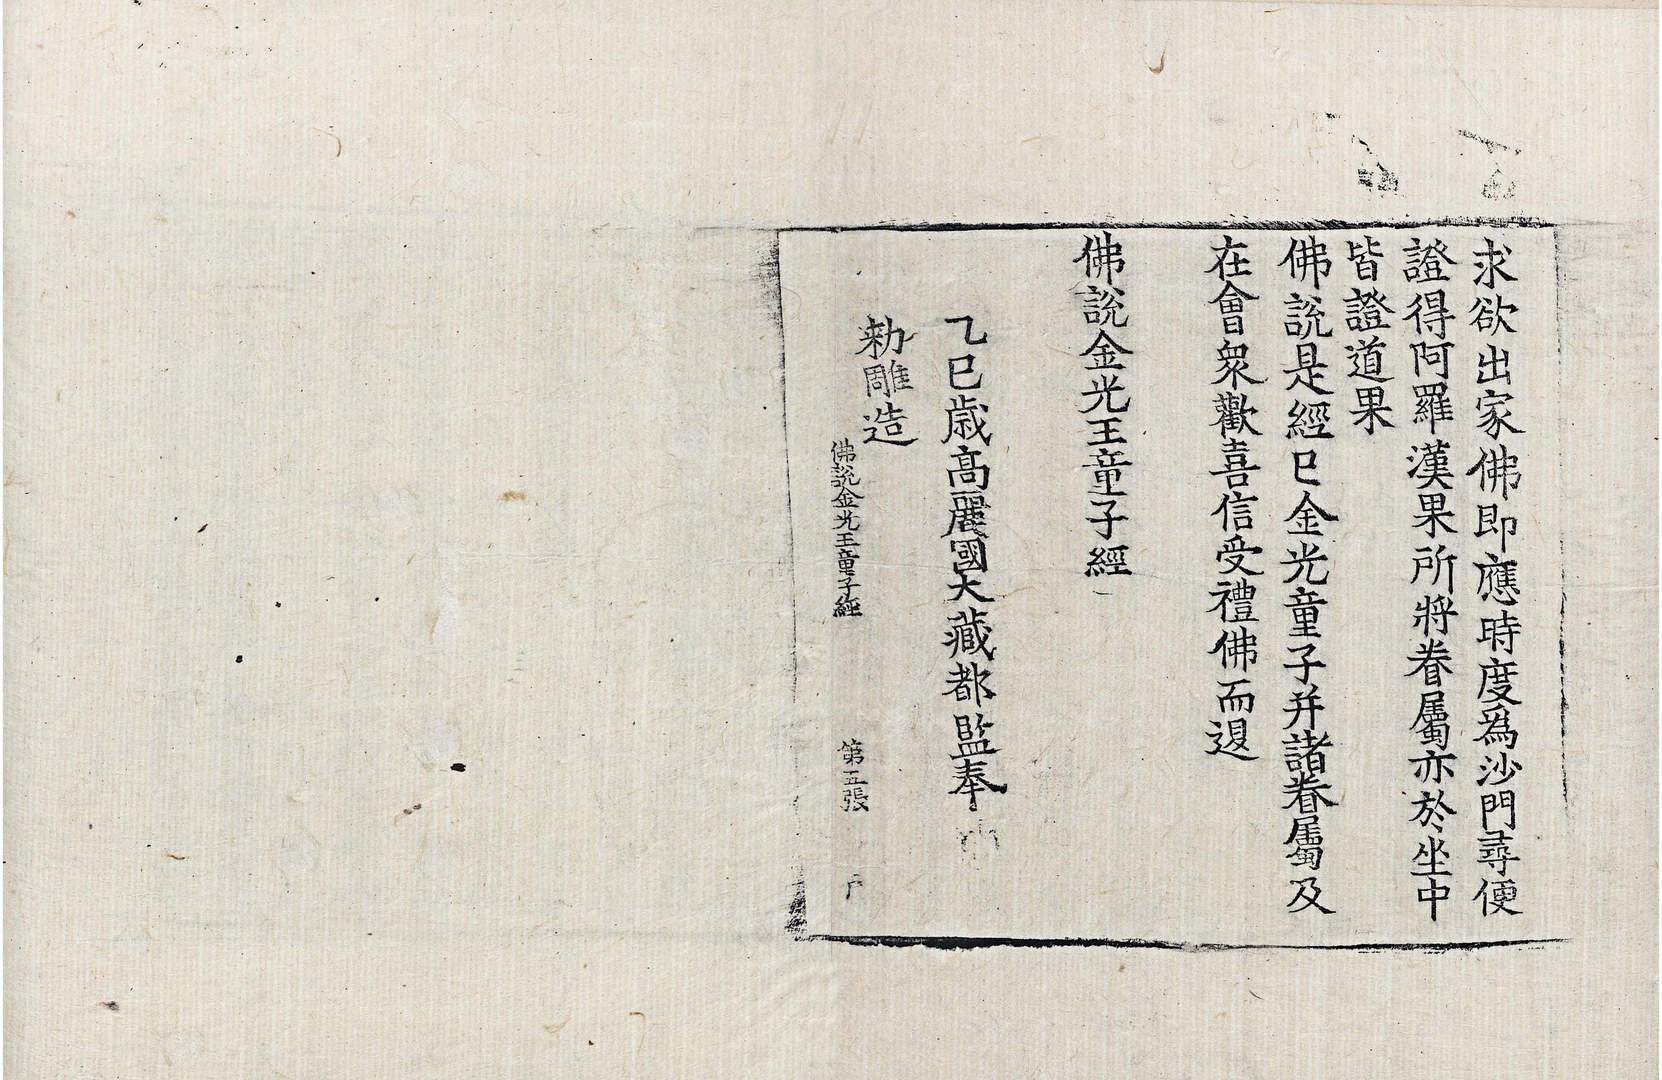 求欲出家佛即應時度為沙門尋便
證得阿羅漢果所將眷屬亦於坐中
皆證道果
佛說是經已金光童子并諸眷屬及
在會衆歡喜信受禮佛而退
佛說金光王童子經
乙巳歳高麗國大藏都監奉
勅雕造
佛說金光王童子經 第五張